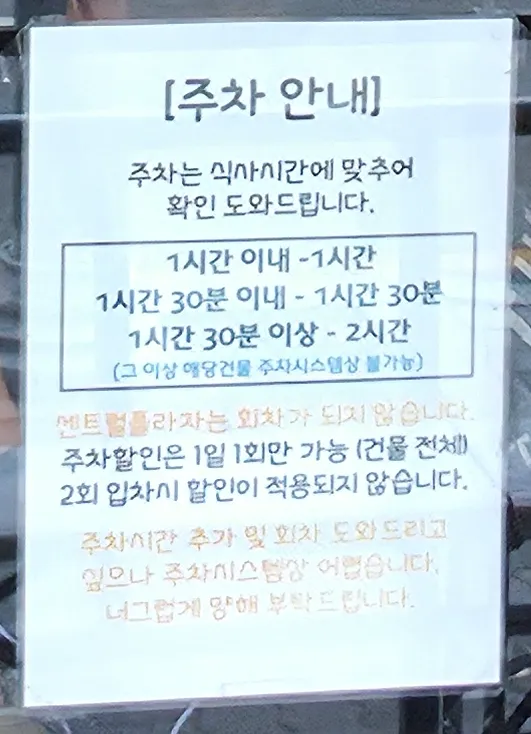 [주차 안내]
주차는 식사시간에 맞추어
확인 도와드립니다.
1시간 이내 -1시간
1시간 30분 이내 - 1시간 30분
1시간 30분 이상 - 2시간
(그 이상 해당건물 주차시스템상 불가능)
센트럴플라자는 회차가 되지 않습니다.
주차할인은 1일 1회만 가능 (건물 전체)
2회 입차시 할인이 적용되지 않습니다.
주차시간 추가 및 회차 도와드리고
싶으나 주차시스템상 어렵습니다.
너그럽게 양해 부탁드립니다.